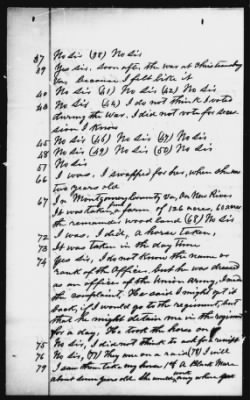 37 No Sir (38) No Sir
39 Yes Sir, soon after the war at Christiansburg
Va, because I felt like it
40 No Sir (41) No Sir (42) No Sir
43 No Sir (44) I do not think I voted
during the war. I did not vote for seces
sion I know
45 No Sir (46) No Sir (47) No Sir
48 No Sir (49) No Sir (50) No Sir
51 No Sir
66 I was, I swapped for her, when she was
two years old
67 In Montgomery County Va, On New River
It was taken, a farm of 126 acres, 60 acres
the remainder wood land (68) No Sir
72 I was, I did, a horse taken,
73 It was taken in the day time
74 Yes Sir, I do not know the name or
rank of the officer, but he was dressed
as an officer of the Union Army, I made
the complaint, He said I might get it
back, if I would go to the regiment, but
that he might detain me in the regiment
for a day, He took the horse on
75 No Sir, I did not think to ask for a receipt
76 No Sir, (77) They were on a raid (78) I will
79 I saw them take my horse, 1st A Black Mare
about seven years old. She would work any where